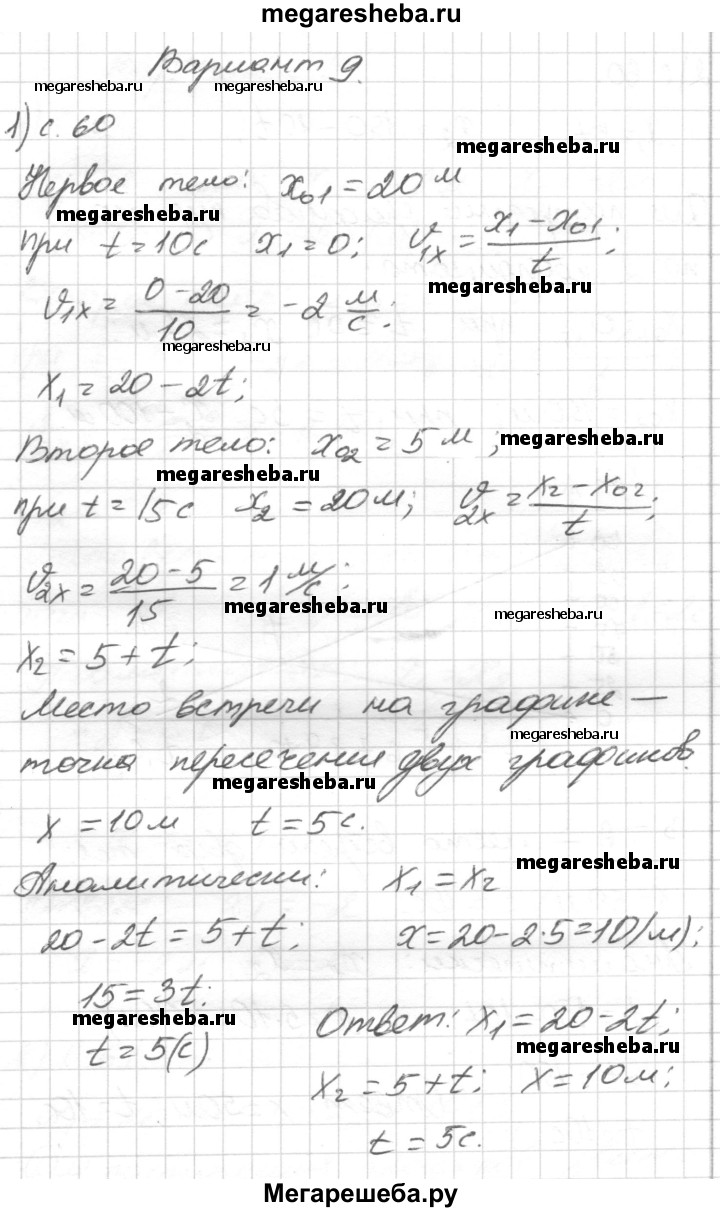 megaresheba.ru
Вариант 9.
megaresheba.ru megaresheba.ru
1) с. 60
megaresheba.ru
Первое тело: x₀₁ = 20 м
megaresheba.ru
при t = 10с x₁ = 0; v₁ₓ = (x₁ - x₀₁)/t;
megaresheba.ru
v₁ₓ = (0 - 20)/10 = -2 м/с;
megaresheba.ru
x₁ = 20 - 2t;
Второе тело: x₀₂ = 5 м; megaresheba.ru
megaresheba.ru
при t = 15с x₂ = 20м; v₂ₓ = (x₂ - x₀₂)/t;
v₂ₓ = (20 - 5)/15 = 1 м/с;
megaresheba.ru megaresheba.ru
x₂ = 5 + t;
Место встречи на графике —
megaresheba.ru
точка пересечения двух графиков.
megaresheba.ru
x = 10м t = 5с.
megaresheba.ru
Аналитически: x₁ = x₂
20 - 2t = 5 + t; x = 20 - 2·5 = 10(м);
15 = 3t;
megaresheba.ru
t = 5(с)
Ответ: x₁ = 20 - 2t;
megaresheba.ru
x₂ = 5 + t; x = 10м;
t = 5с.
Мегарешеба.ру